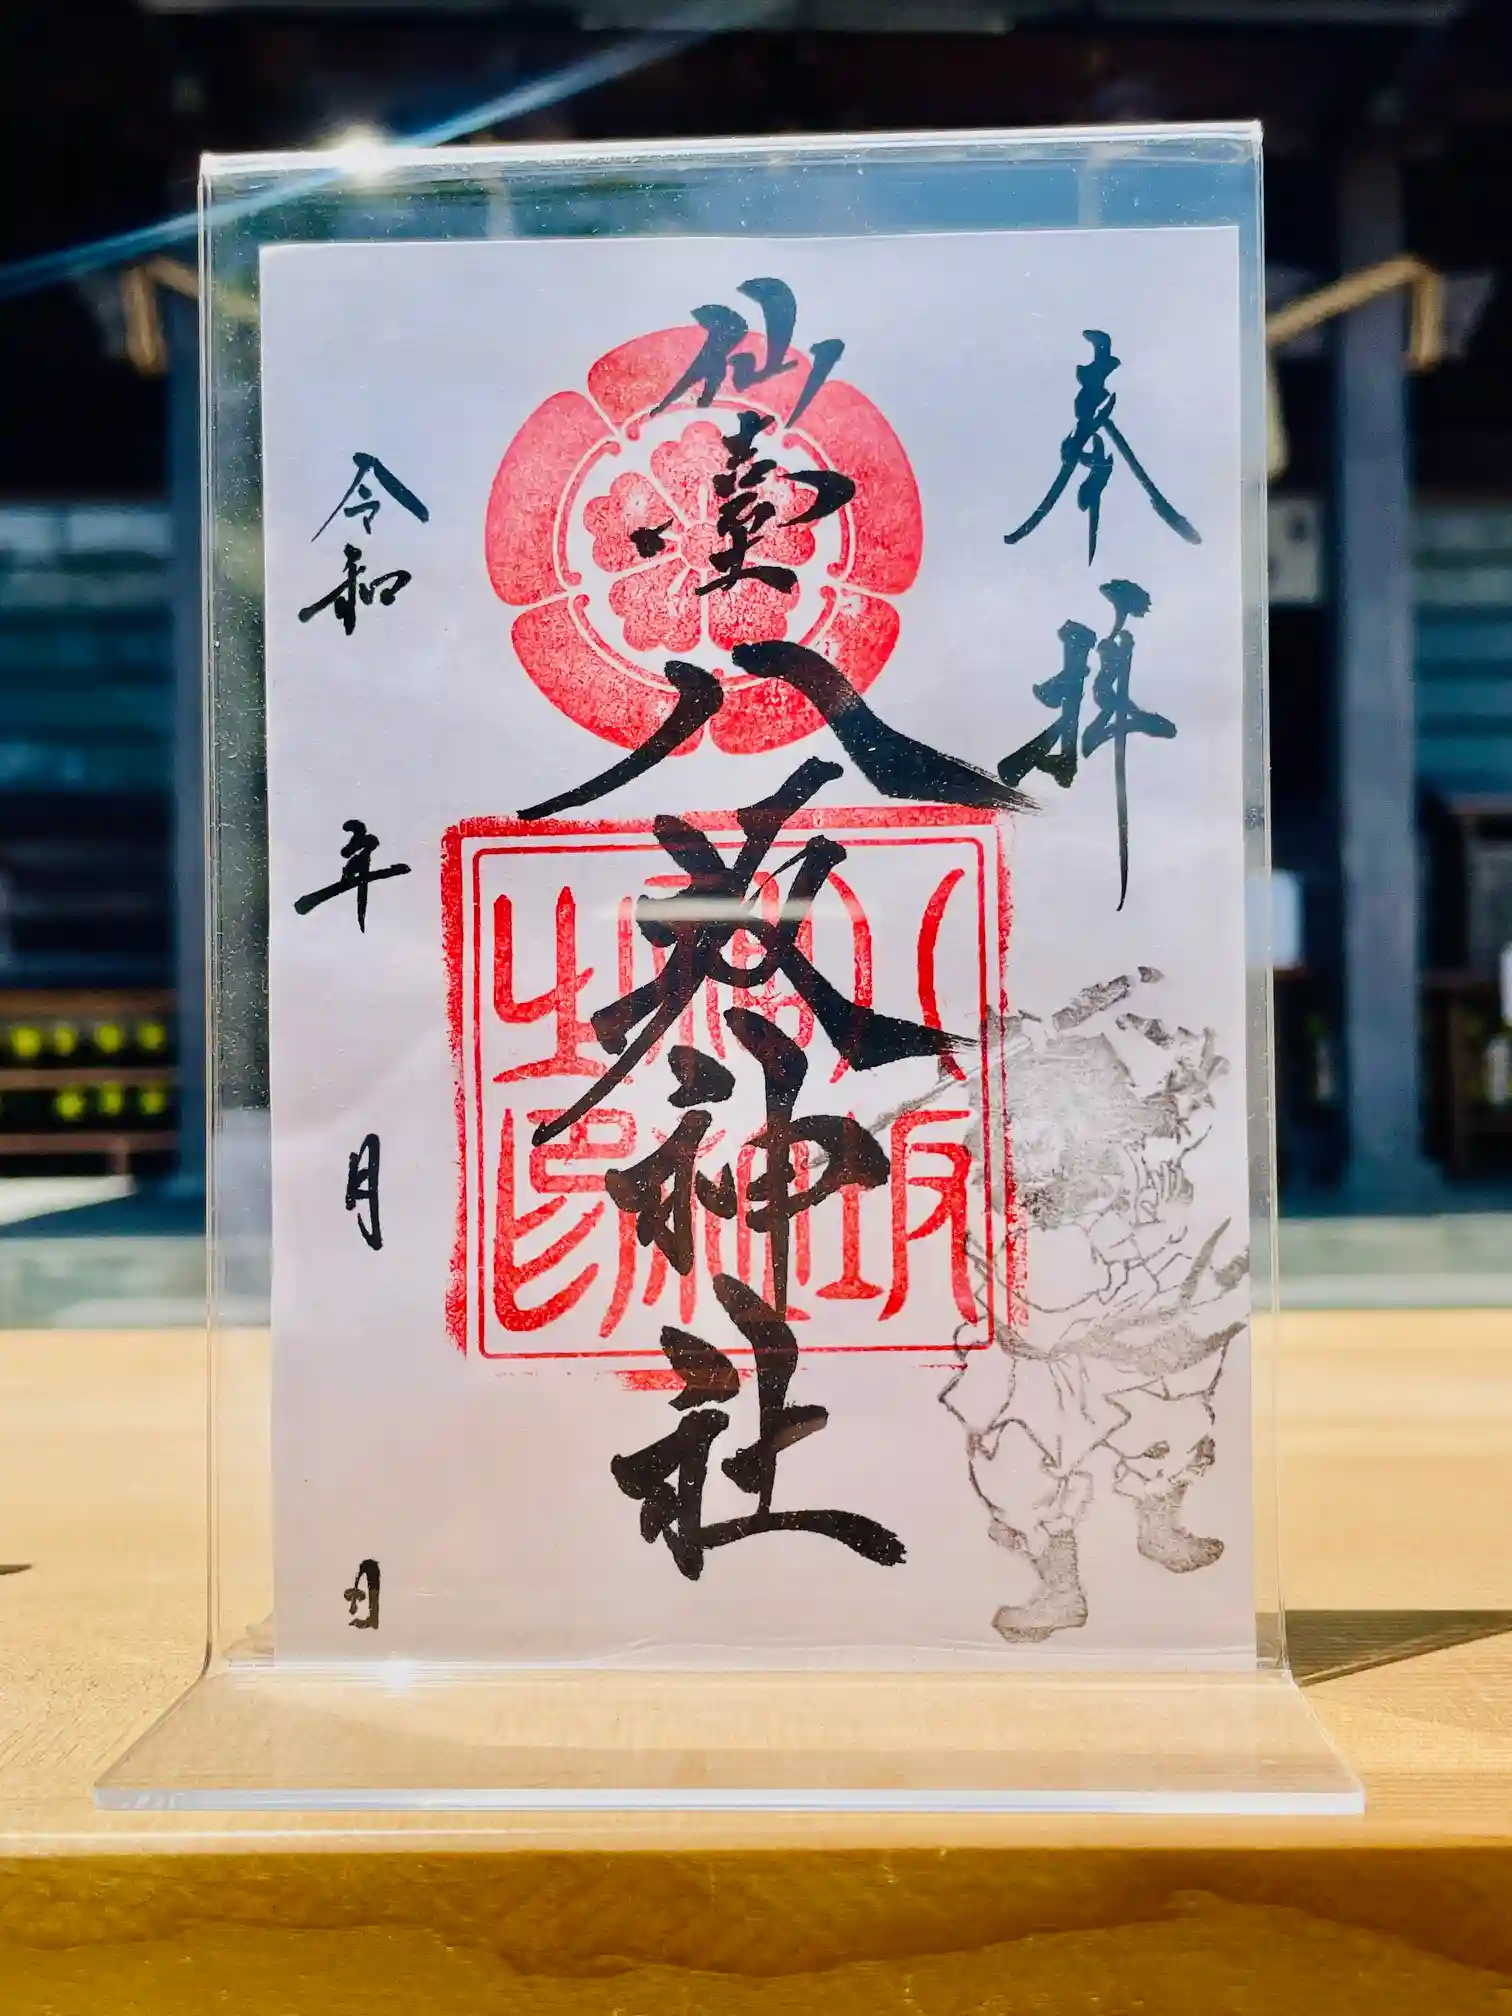 奉拝
仙臺八坂神社
八坂神社之印
令和 年 月 日